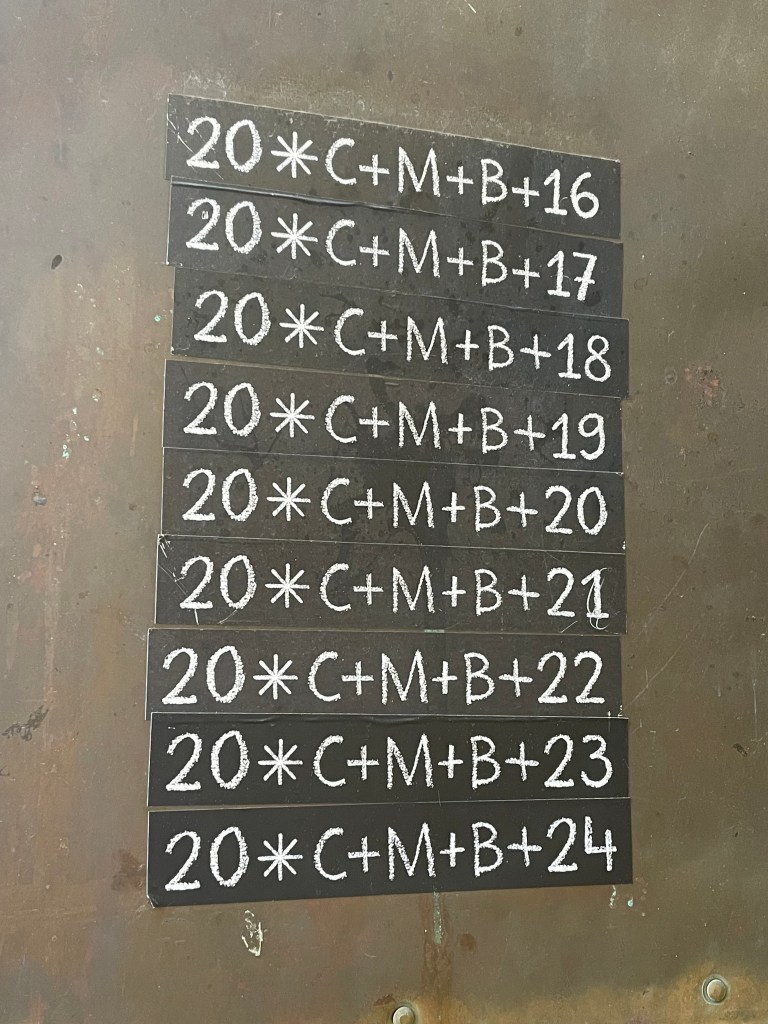 20*C+M+B+16
20*C+M+B+17
20*C+M+B+18
20*C+M+B+19
20*C+M+B+20
20*C+M+B+21
20*C+M+B+22
20*C+M+B+23
20*C+M+B+24